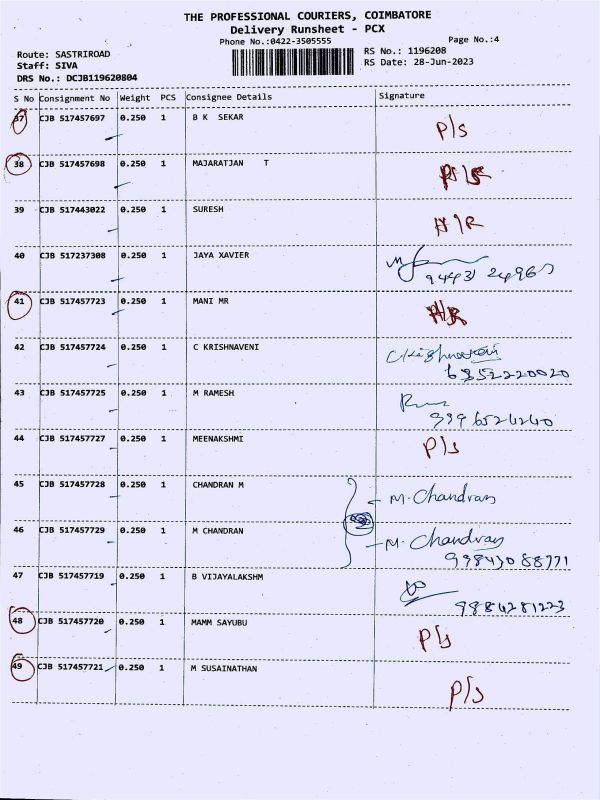 THE PROFESSIONAL COURIERS, COIMBATORE
Delivery Runsheet - PCX
Phone No.:0422-3505555
Page No.:4
Route: SASTRIROAD
RS No.: 1196208
Staff: SIVA
RS Date: 28-Jun-2023
DRS No.: DCJB119620804
S No Consignment No Weight PCS Consignee Details Signature
37 CJB 517457697 0.250 1 B K SEKAR P/s
38 CJB 517457698 0.250 1 MAJARATJAN T
39 CJB 517443022 0.250 1 SURESH
40 CJB 517237308 0.250 1 JAYA XAVIER
41 CJB 517457723 0.250 1 MANI MR
42 CJB 517457724 0.250 1 C KRISHNAVENI
43 CJB 517457725 0.250 1 M RAMESH
44 CJB 517457727 0.250 1 MEENAKSHMI P/s
45 CJB 517457728 0.250 1 CHANDRAN M M. Chandran
46 CJB 517457729 0.250 1 M CHANDRAN M. Chandran
47 CJB 517457719 0.250 1 B VIJAYALAKSHM
9884281223
48 CJB 517457720 0.250 1 MAMM SAYUBU P/s
49 CJB 517457721 0.250 1 M SUSAINATHAN P/s